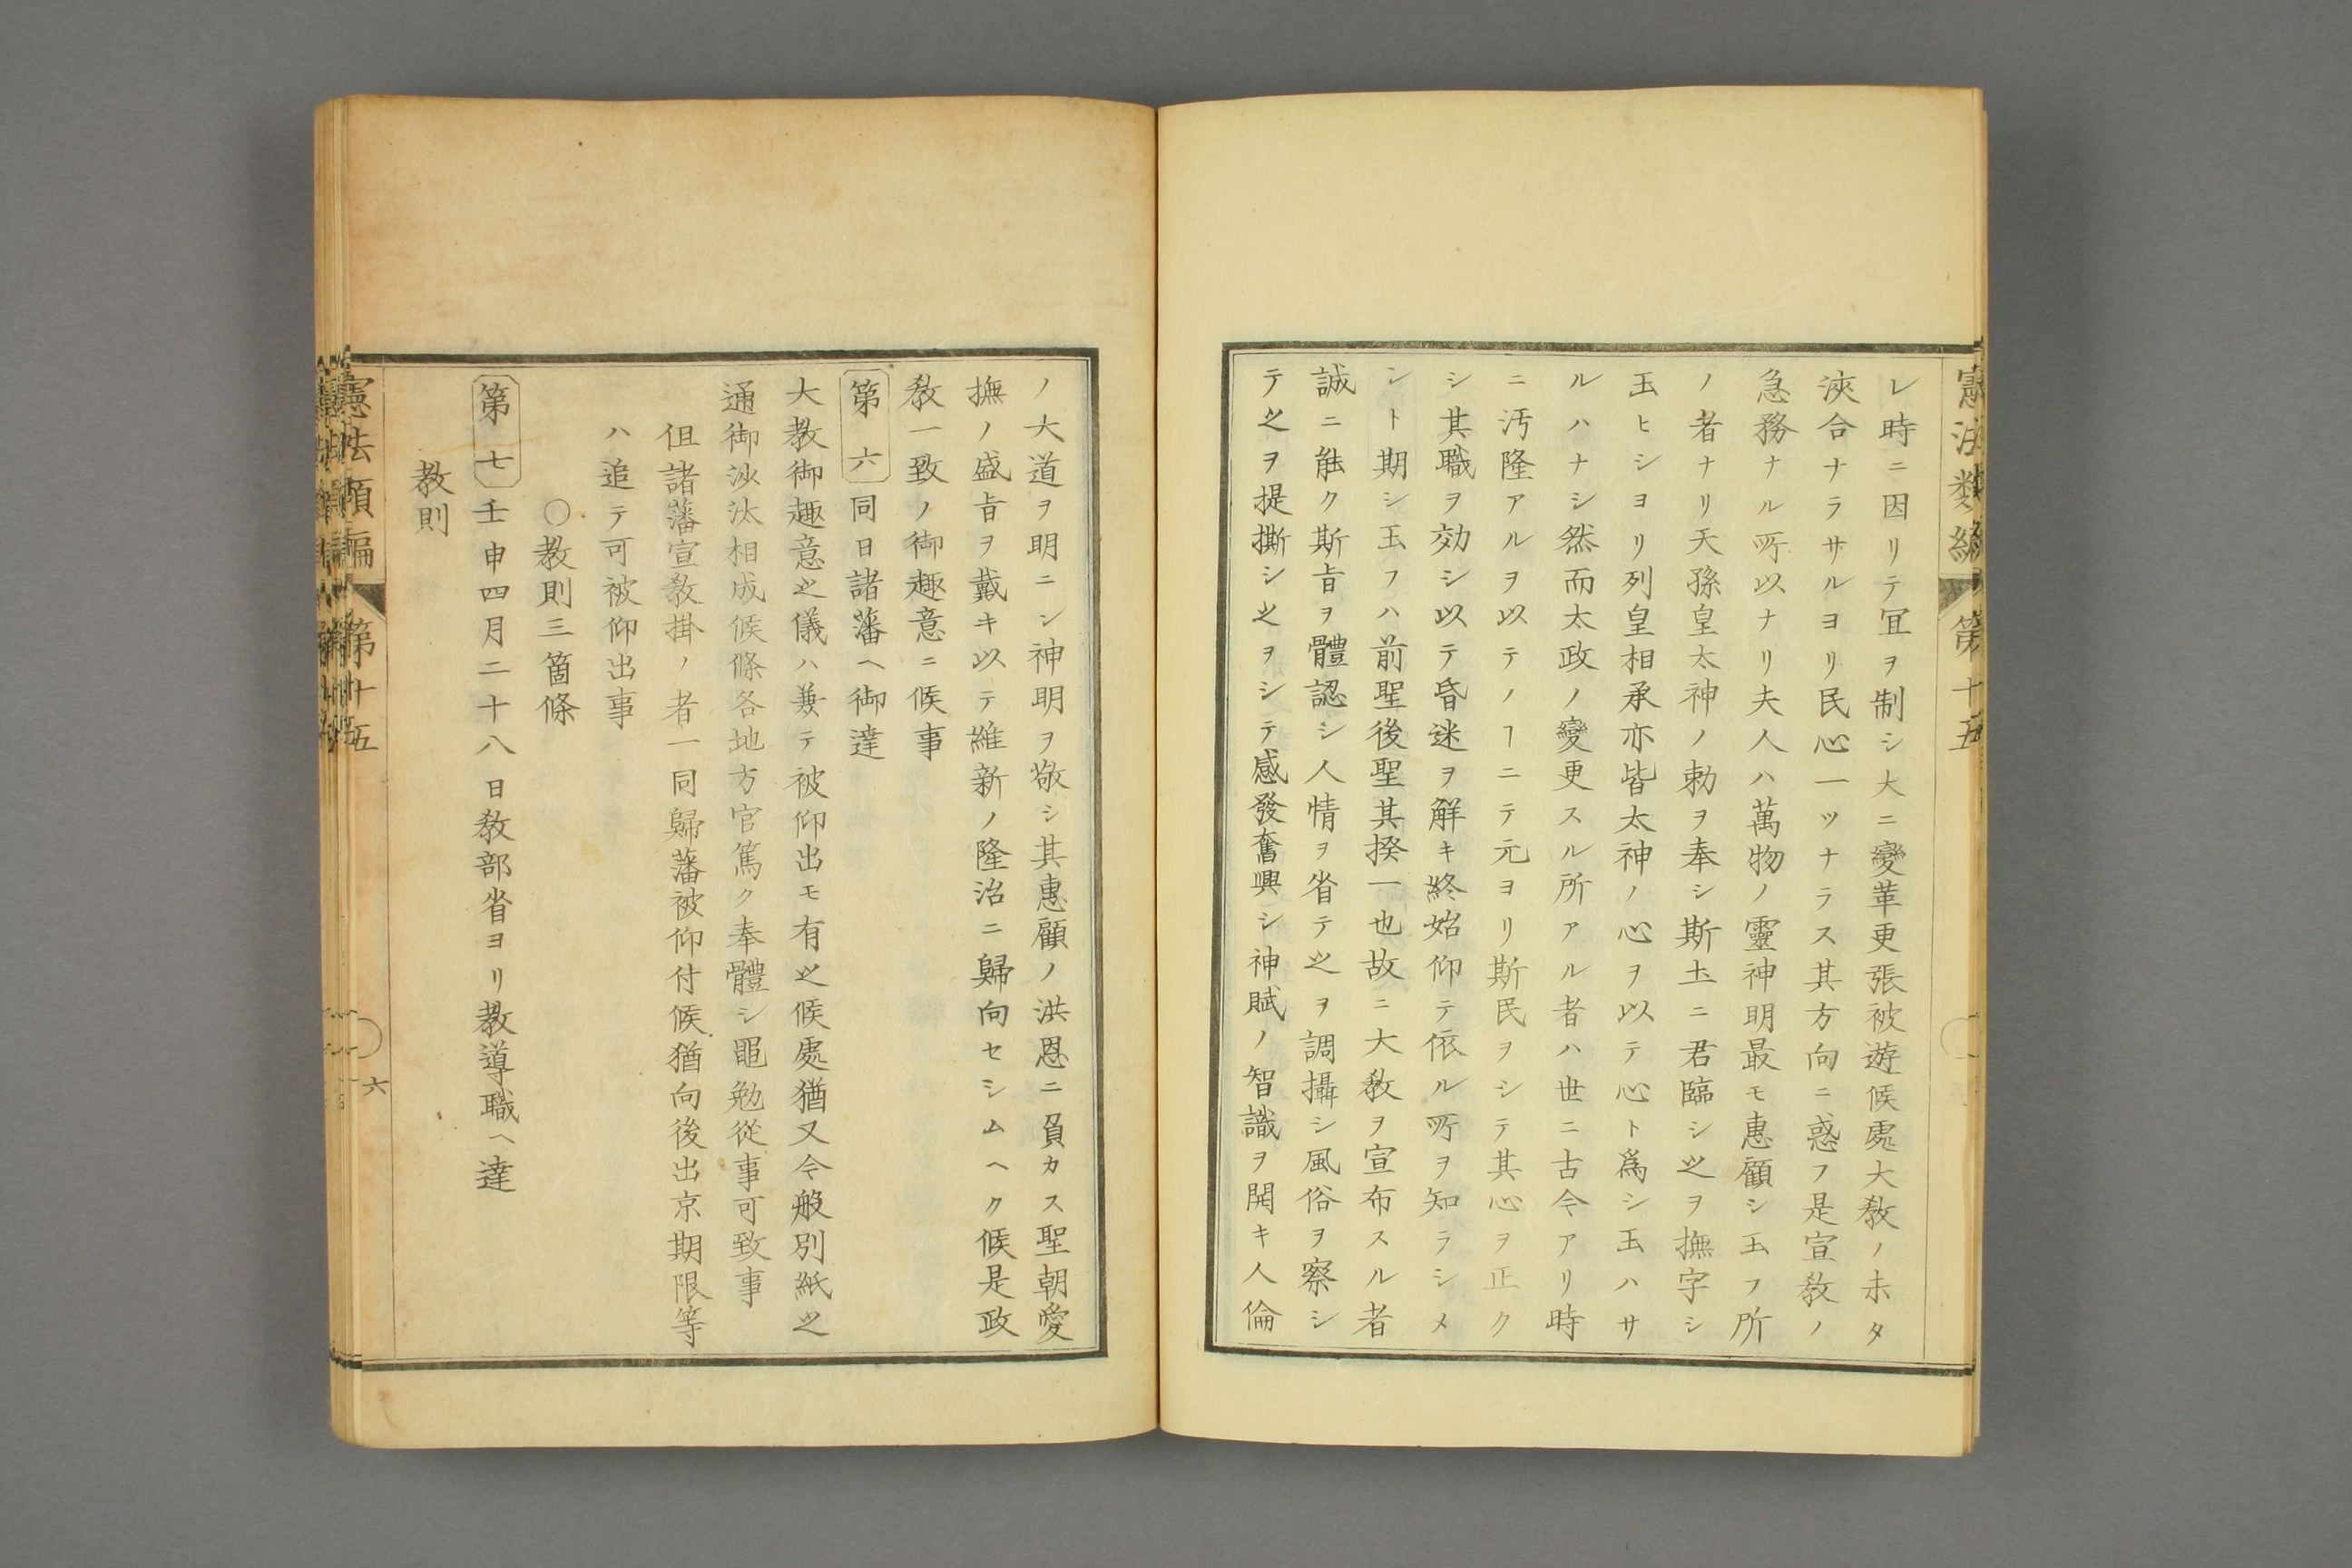 憲法類編 第十五
レ時ニ因リテ冝ヲ制シ大ニ變革更張被遊候處大教ノ未タ
浹合ナラサルヨリ民心一ツナラス其方向ニ惑フ是宣教ノ
急務ナル所以ナリ夫人ハ萬物ノ靈神明最モ惠顧シ玉フ所
ノ者ナリ天孫皇太神ノ勅ヲ奉シ斯土ニ君臨シ之ヲ撫字シ
玉ヒシヨリ列皇相承亦皆太神ノ心ヲ以テ心ト爲シ玉ハサ
ルハナシ然而太政ノ變更スル所アル者ハ世ニ古今アリ時
ニ汚隆アルヲ以テノヿニテ元ヨリ斯民ヲシテ其心ヲ正ク
シ其職ヲ効シ以テ昏迷ヲ解キ終始仰テ依ル所ヲ知ラシメ
ント期シ玉フハ前聖後聖其揆一也故ニ大教ヲ宣布スル者
誠ニ能ク斯旨ヲ體認シ人情ヲ省テ之ヲ調攝シ風俗ヲ察シ
テ之ヲ提撕シ之ヲシテ感發奮興シ神賦ノ智識ヲ開キ人倫
ノ大道ヲ明ニシ神明ヲ敬シ其惠顧ノ洪恩ニ負カス聖朝愛
撫ノ盛旨ヲ戴キ以テ維新ノ隆治ニ歸向セシムヘク候是政
教一致ノ御趣意ニ候事
第六 同日諸藩ヘ御達
大教御趣意之儀ハ兼テ被仰出モ有之候處猶又今般別紙之
通御沙汰相成候條各地方官篤ク奉體シ黽勉從事可致事
但諸藩宣教掛ノ者一同歸藩被仰付候猶向後出京期限等
ハ追テ可被仰出事
○教則三箇條
第七 壬申四月二十八日教部省ヨリ教導職ヘ達
教則
憲法類編 第十五 六